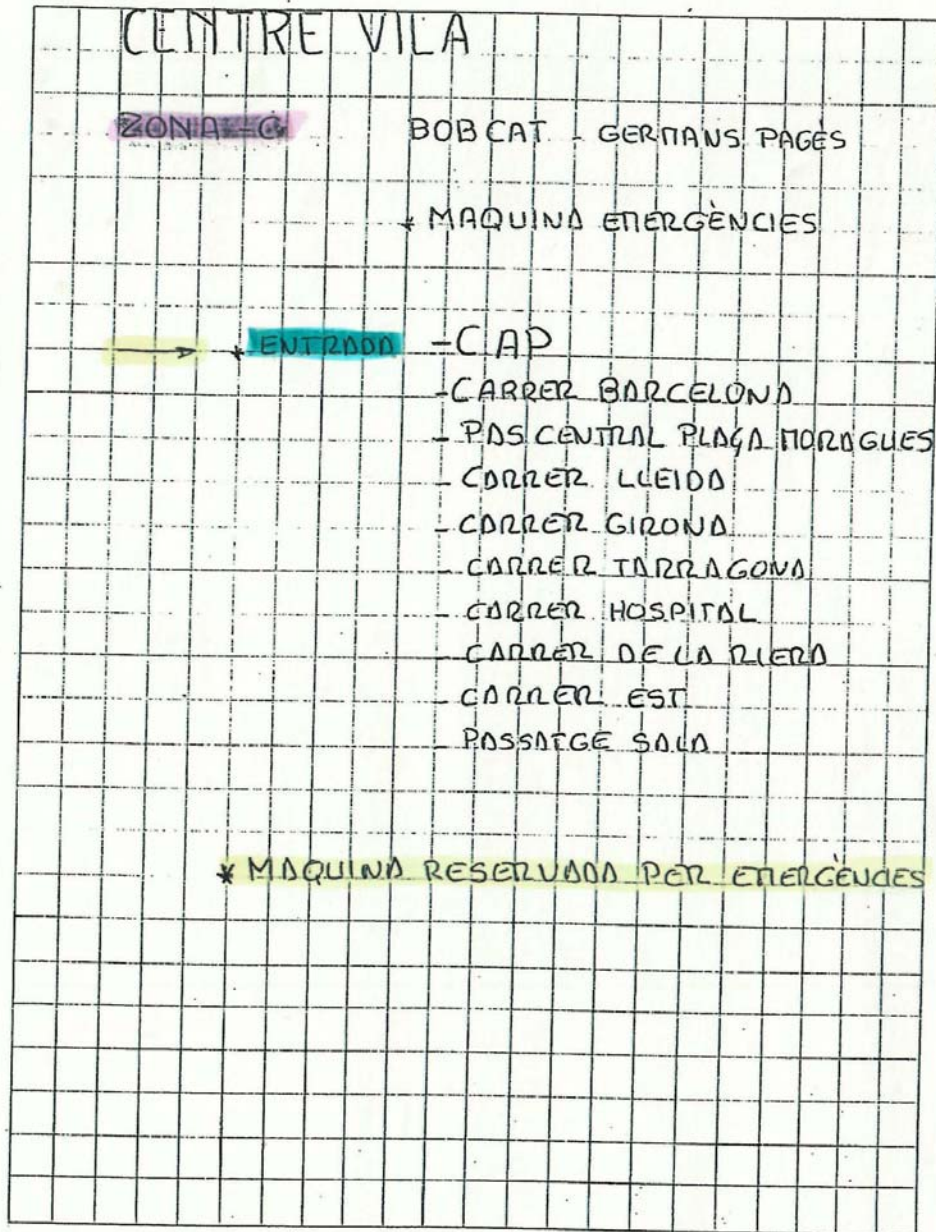 CENTRE VILA
ZONA-C BOBCAT - GERMANS PAGÈS
* MAQUINA EMERGÈNCIES
* ENTRADA - CAP
- CARRER BARCELONA
- PAS CENTRAL PLAÇA MORAGUES
- CARRER LLEIDA
- CARRER GIRONA
- CARRER TARRAGONA
- CARRER HOSPITAL
- CARRER DE LA RIERA
- CARRER EST
- PASSATGE SALA
* MAQUINA RESERVADA PER EMERGÈNCIES